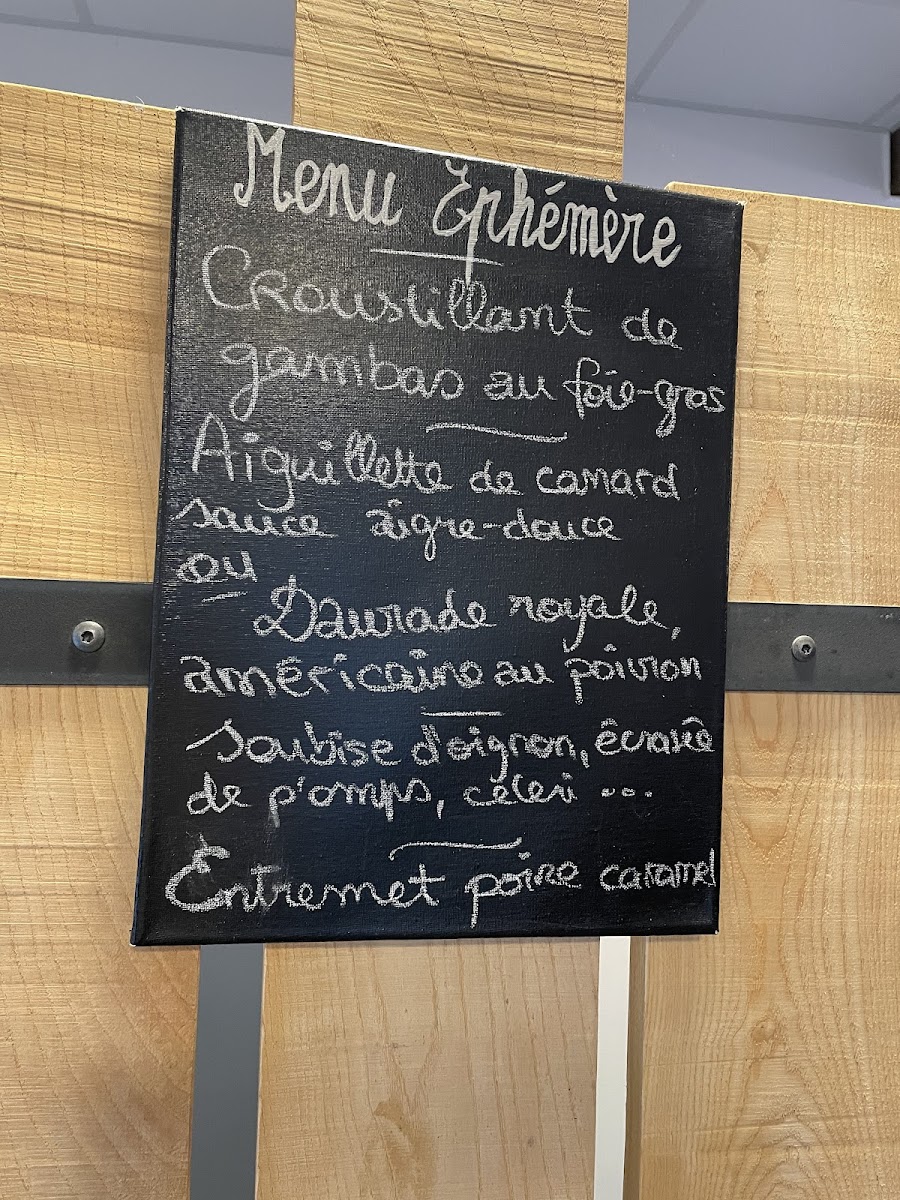 Menu Ephémère
Croustillant de
gambas au foie-gras
Aiguillette de canard
sauce aigre-douce
ou
Daurade royale,
américaine au poivron
Soubise d'oignon, écrasé
de p'omps, céleri ...
Entremet poire caramel